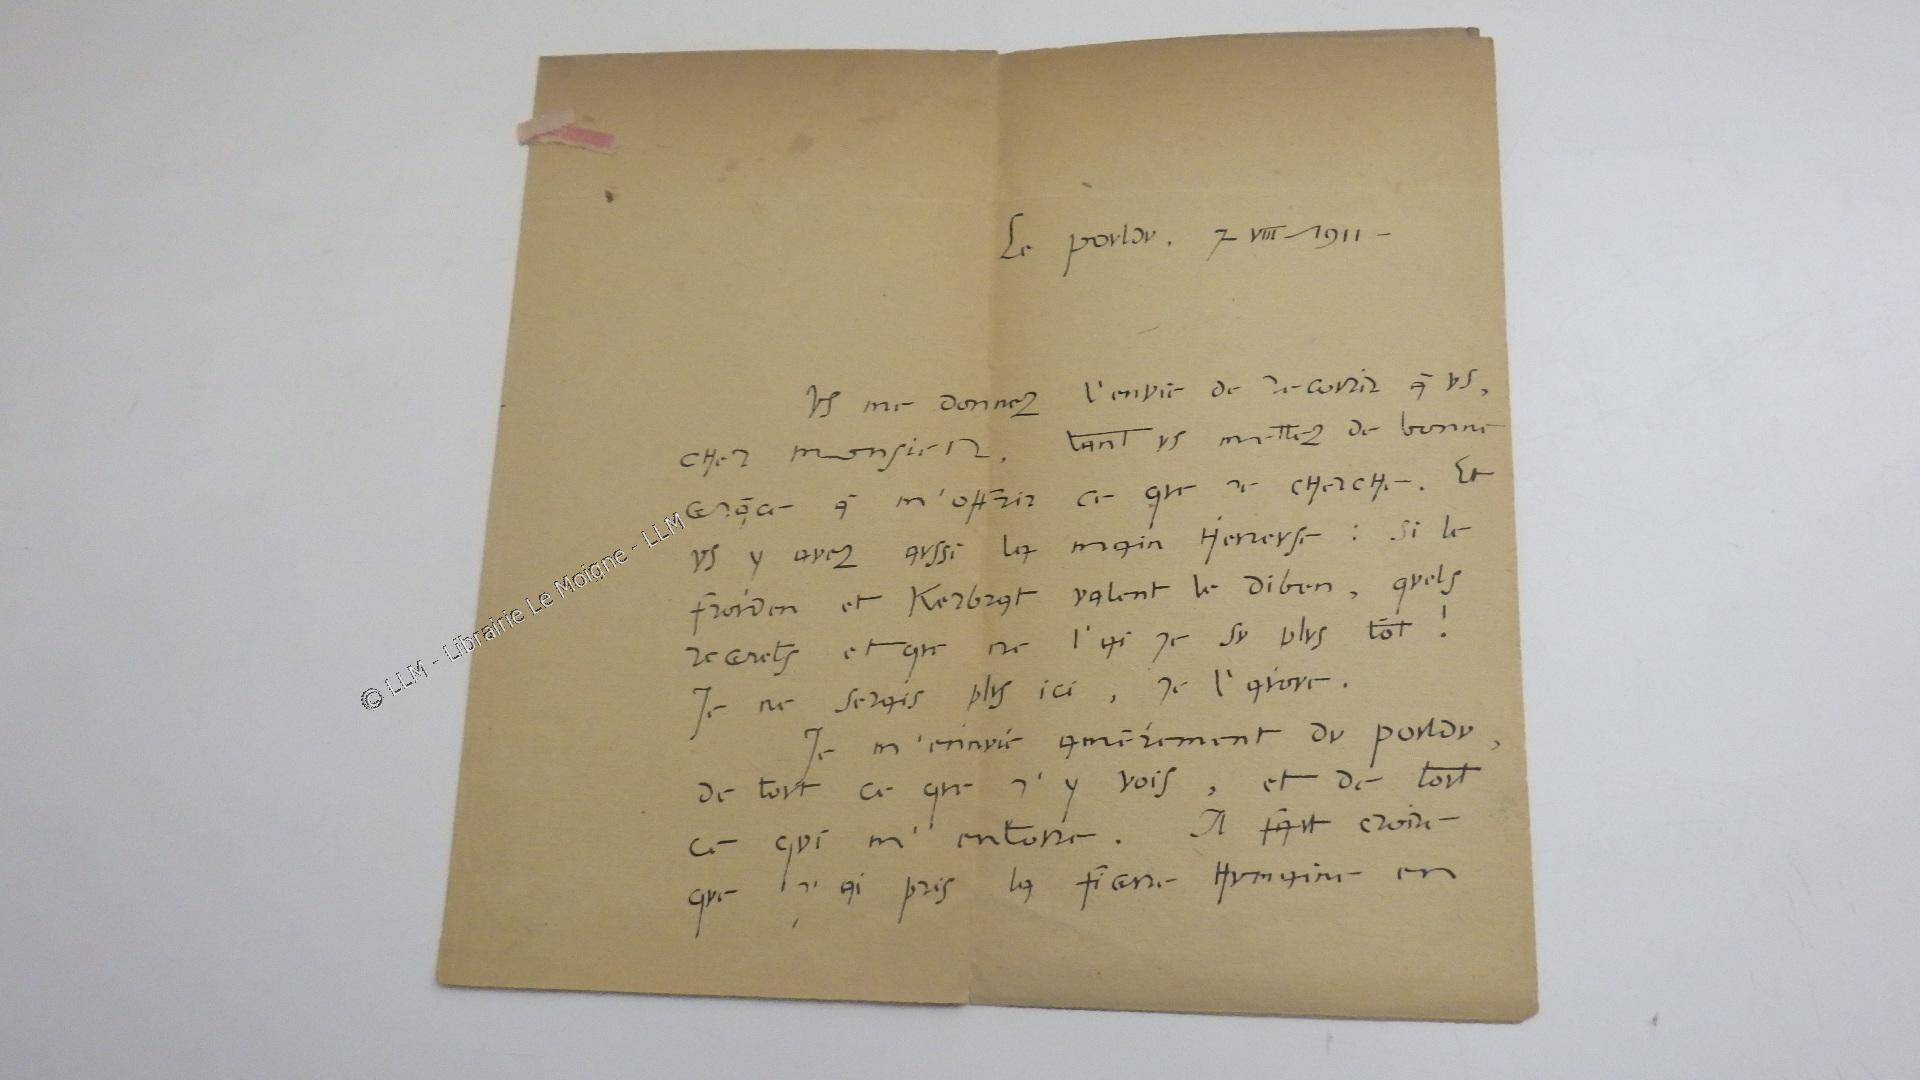 Le pouldu. 7 VIII 1911 -
Vs me donnez l'envie de recourir à vs,
cher monsieur, tant vs mettez de bonne
grâce à m'offrir ce que je cherche. Et
vs y avez aussi la main heureuse : si le
et Kerbrat valent le diben, quels
regrets et que ne l'ai je su plus tôt !
Je ne serais plus ici, je l'avoue.
Je m'ennuie amèrement au pouldu,
de tout ce que j'y vois, et de tout
ce qui m'entoure. Il faut croire
que j'ai pris la figure humaine en
© LLM - Librairie Le Moigne - LLM